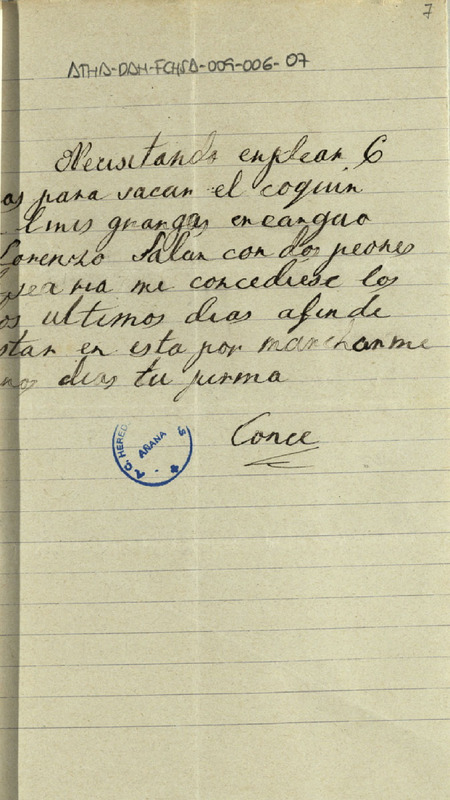 7
ATHA-DAH-FCHSA-009-006-07
Necisitando enplear 6
as para sacar el coquin
mis granjas encanguo
Lorenzo Salan con dos peones
me concediese los
os ultimos dias afin de
star en esta por marcharme
nos dias tu prima
Conce
HERED
AÑANA